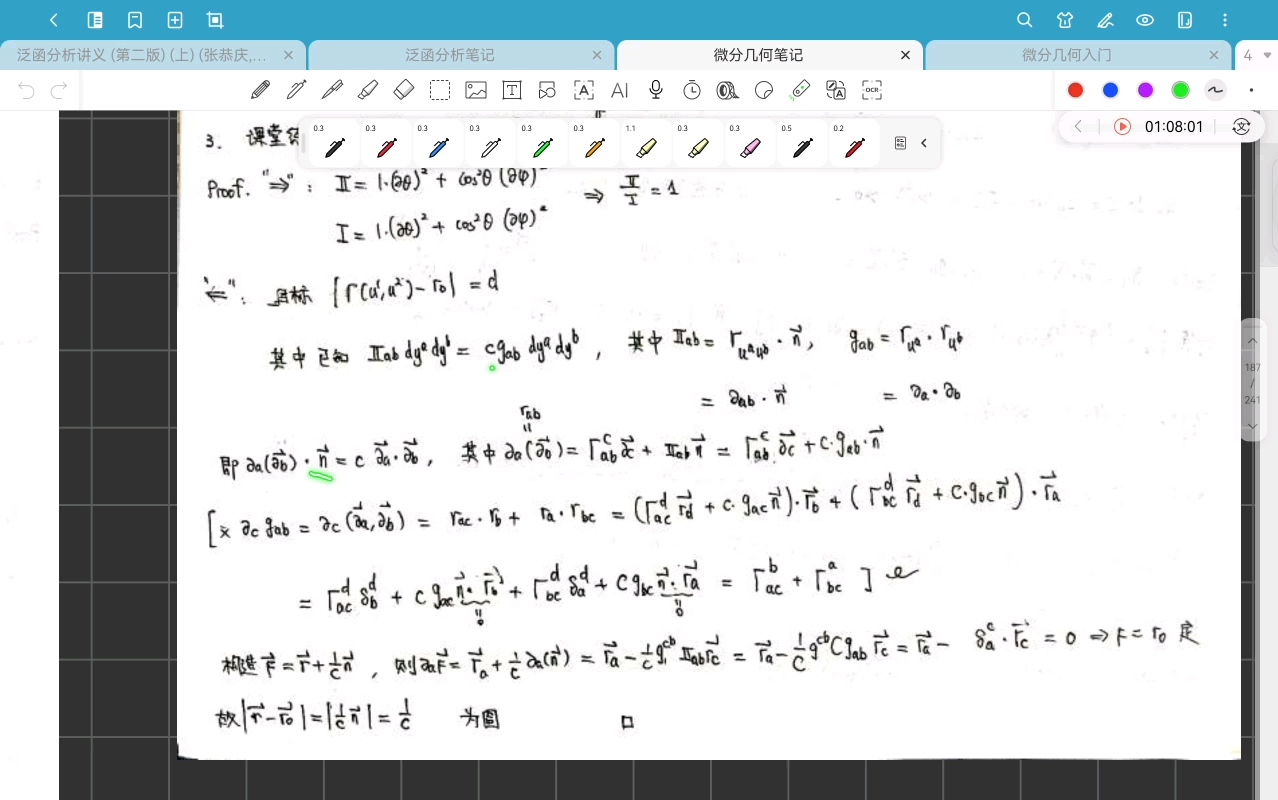 泛函分析讲义 (第二版) (上) (张恭庆,...
泛函分析笔记
微分几何笔记
微分几何入门
4
AI
OCR
0.3 0.3 0.5 0.3 0.3 0.3 1.1 0.3 0.3 0.5 0.2
01:08:01
3. 课堂
Proof. "⇒": Ⅱ = 1·(∂θ)² + cos²θ (∂φ)² ⇒ Ⅱ/Ⅰ = 1
Ⅰ = 1·(∂θ)² + cos²θ (∂φ)²
"⇐": 目标 |r(u¹,u²) - r₀| = d
其中已知 Ⅱab dyᵃdyᵇ = cgab dyᵃdyᵇ, 其中 Ⅱab = r_{uᵃuᵇ}·n⃗, gab = r_{uᵃ}·r_{uᵇ}
= ∂ab·n⃗ = ∂a·∂b
rab
"
即 ∂a(∂⃗b)·n⃗ = c ∂⃗a·∂⃗b, 其中 ∂a(∂⃗b) = Γ^c_ab ∂⃗c + Ⅱab n⃗ = Γ^c_ab ∂⃗c + c·gab·n⃗
[× ∂c gab = ∂c(∂⃗a,∂⃗b) = rac·rb + ra·rbc = (Γ^d_ac r⃗d + c·gac n⃗)·r⃗b + (Γ^d_bc r⃗d + c·gbc n⃗)·r⃗a
= Γ^d_ac δ^d_b + c gac n⃗·r⃗b + Γ^d_bc δ^d_a + c gbc n⃗·r⃗a = Γ^b_ac + Γ^a_bc ]
" 0 " 0
构造 F⃗ = r⃗ + 1/c n⃗, 则 ∂aF⃗ = r⃗a + 1/c ∂a(n⃗) = r⃗a - 1/c g^cb Ⅱab r⃗c = r⃗a - 1/c g^cb c gab r⃗c = r⃗a - δ^c_a·r⃗c = 0 ⇒ F = r₀ 定
故 |r⃗ - r⃗₀| = |1/c n⃗| = 1/c 为圆 □
187
/
241